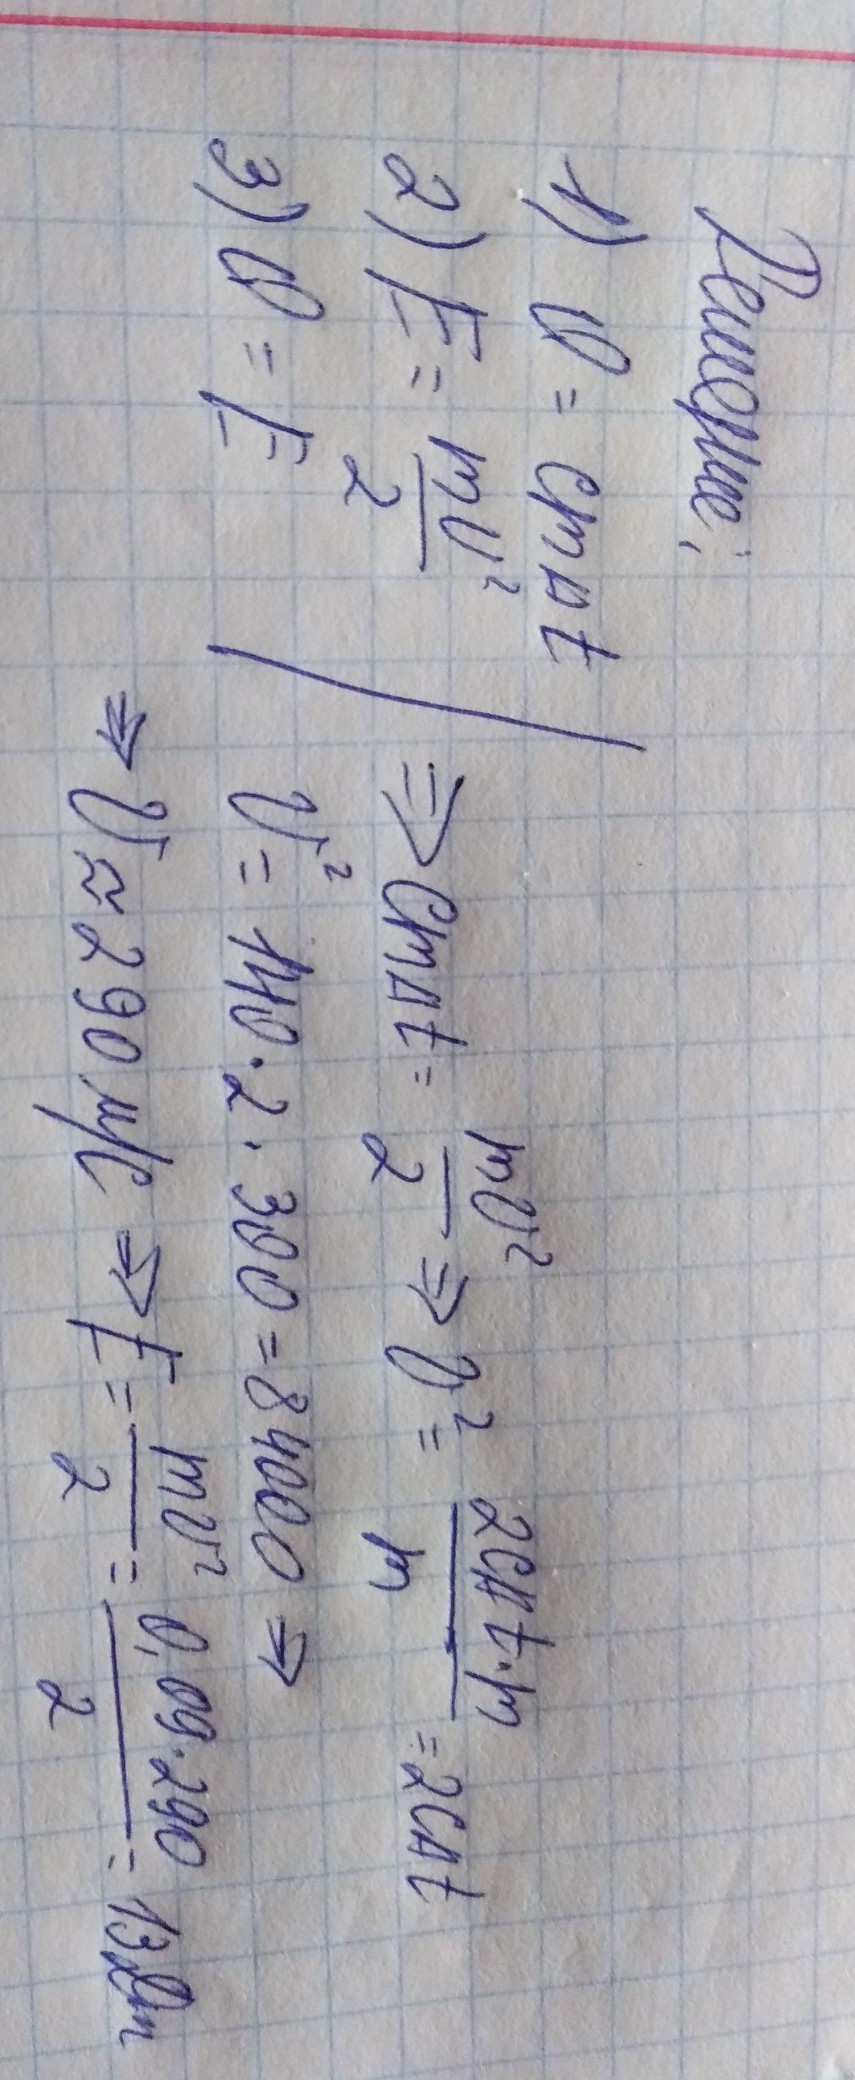 Решение:
1) Q = cmΔt
2) E = mυ²/2
3) Q = E
⇒ cmΔt = mυ²/2 ⇒ υ² = 2cΔt·m/m = 2cΔt
υ² = 140·2·300 = 84000 ⇒
⇒ υ ≈ 290 м/с ⇒ E = mυ²/2 = 0,09·290/2 = 13Дж